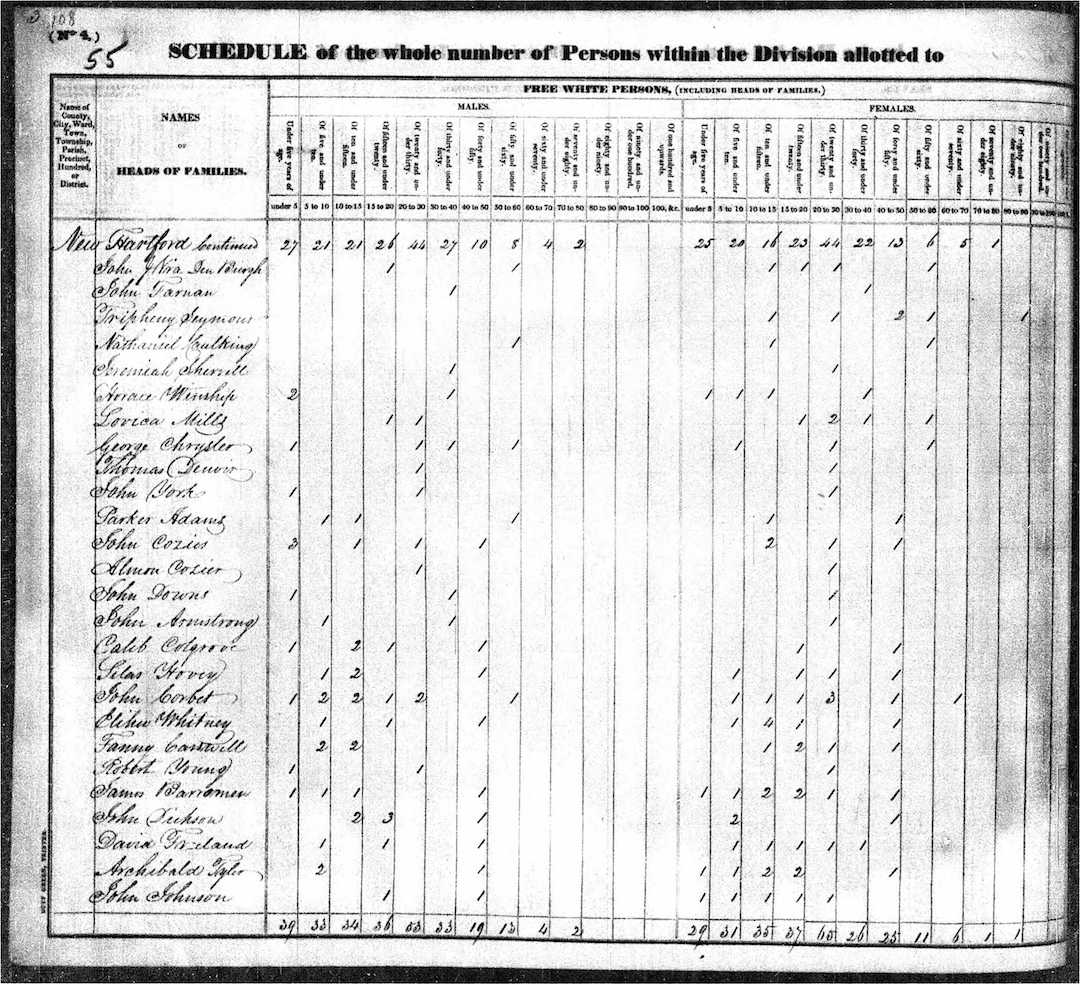 3 108
(No 4.)
55
SCHEDULE of the whole number of Persons within the Division allotted to
Name of County, City, Ward, Town, Township, Parish, Precinct, Hundred, or District.
NAMES OF HEADS OF FAMILIES.
FREE WHITE PERSONS, (INCLUDING HEADS OF FAMILIES.)
MALES. FEMALES.
Under five years of age. Of five and under ten. Of ten and under fifteen. Of fifteen and under twenty. Of twenty and under thirty. Of thirty and under forty. Of forty and under fifty. Of fifty and under sixty. Of sixty and under seventy. Of seventy and under eighty. Of eighty and under ninety. Of ninety and under one hundred. Of one hundred and upwards. Under five years of age. Of five and under ten. Of ten and under fifteen. Of fifteen and under twenty. Of twenty and under thirty. Of thirty and under forty. Of forty and under fifty. Of fifty and under sixty. Of sixty and under seventy. Of seventy and under eighty. Of eighty and under ninety. Of ninety and under one hundred.
under 5 5 to 10 10 to 15 15 to 20 20 to 30 30 to 40 40 to 50 50 to 60 60 to 70 70 to 80 80 to 90 90 to 100 100, &c. under 5 5 to 10 10 to 15 15 to 20 20 to 30 30 to 40 40 to 50 50 to 60 60 to 70 70 to 80 80 to 90 90 to 100
New Hartford Continued 27 21 21 26 44 27 10 8 4 2 25 20 16 23 44 22 13 6 5 1
John J Den Burgh 1 1 1 1 1 1
John Farnan 1 1
Tripheny Seymour 1 1 2 1 1
Nathaniel Caulking 1 1 1
Jeremiah Sherrill 1 1
Horace Winship 2 1 1 1 1 1
Lovica Mills 1 1 1 2 1 1
George Chrysler 1 1 1 1 1 1 1 1
Thomas Denver 1 1
John York 1 1 1
Parker Adams 1 1 1 1 1
John Cozier 3 1 1 1 2 1 1
Almon Cozier 1 1
John Downs 1 1 1
John Armstrong 1 1 1
Calib Colgrove 1 2 1 1 1 1
Silas Hovey 1 2 1 1 1 1 1
John Corbet 1 2 2 1 2 1 1 1 1 3 1 1
Elihu Whitney 1 1 1 1 4 1 1
Fanny 2 2 1 2 1 1
Robert Young 1 1 1
James 1 1 1 1 1 1 2 2 1 1
John Dickson 2 3 1 2 1
David 1 1 1 1 1 1 1 1
Archibald Tyler 2 1 1 1 2 2 1
John Johnson 1 1 1 1 1 1 1
39 33 34 36 53 33 19 13 4 2 29 31 35 37 65 26 25 11 6 1 1